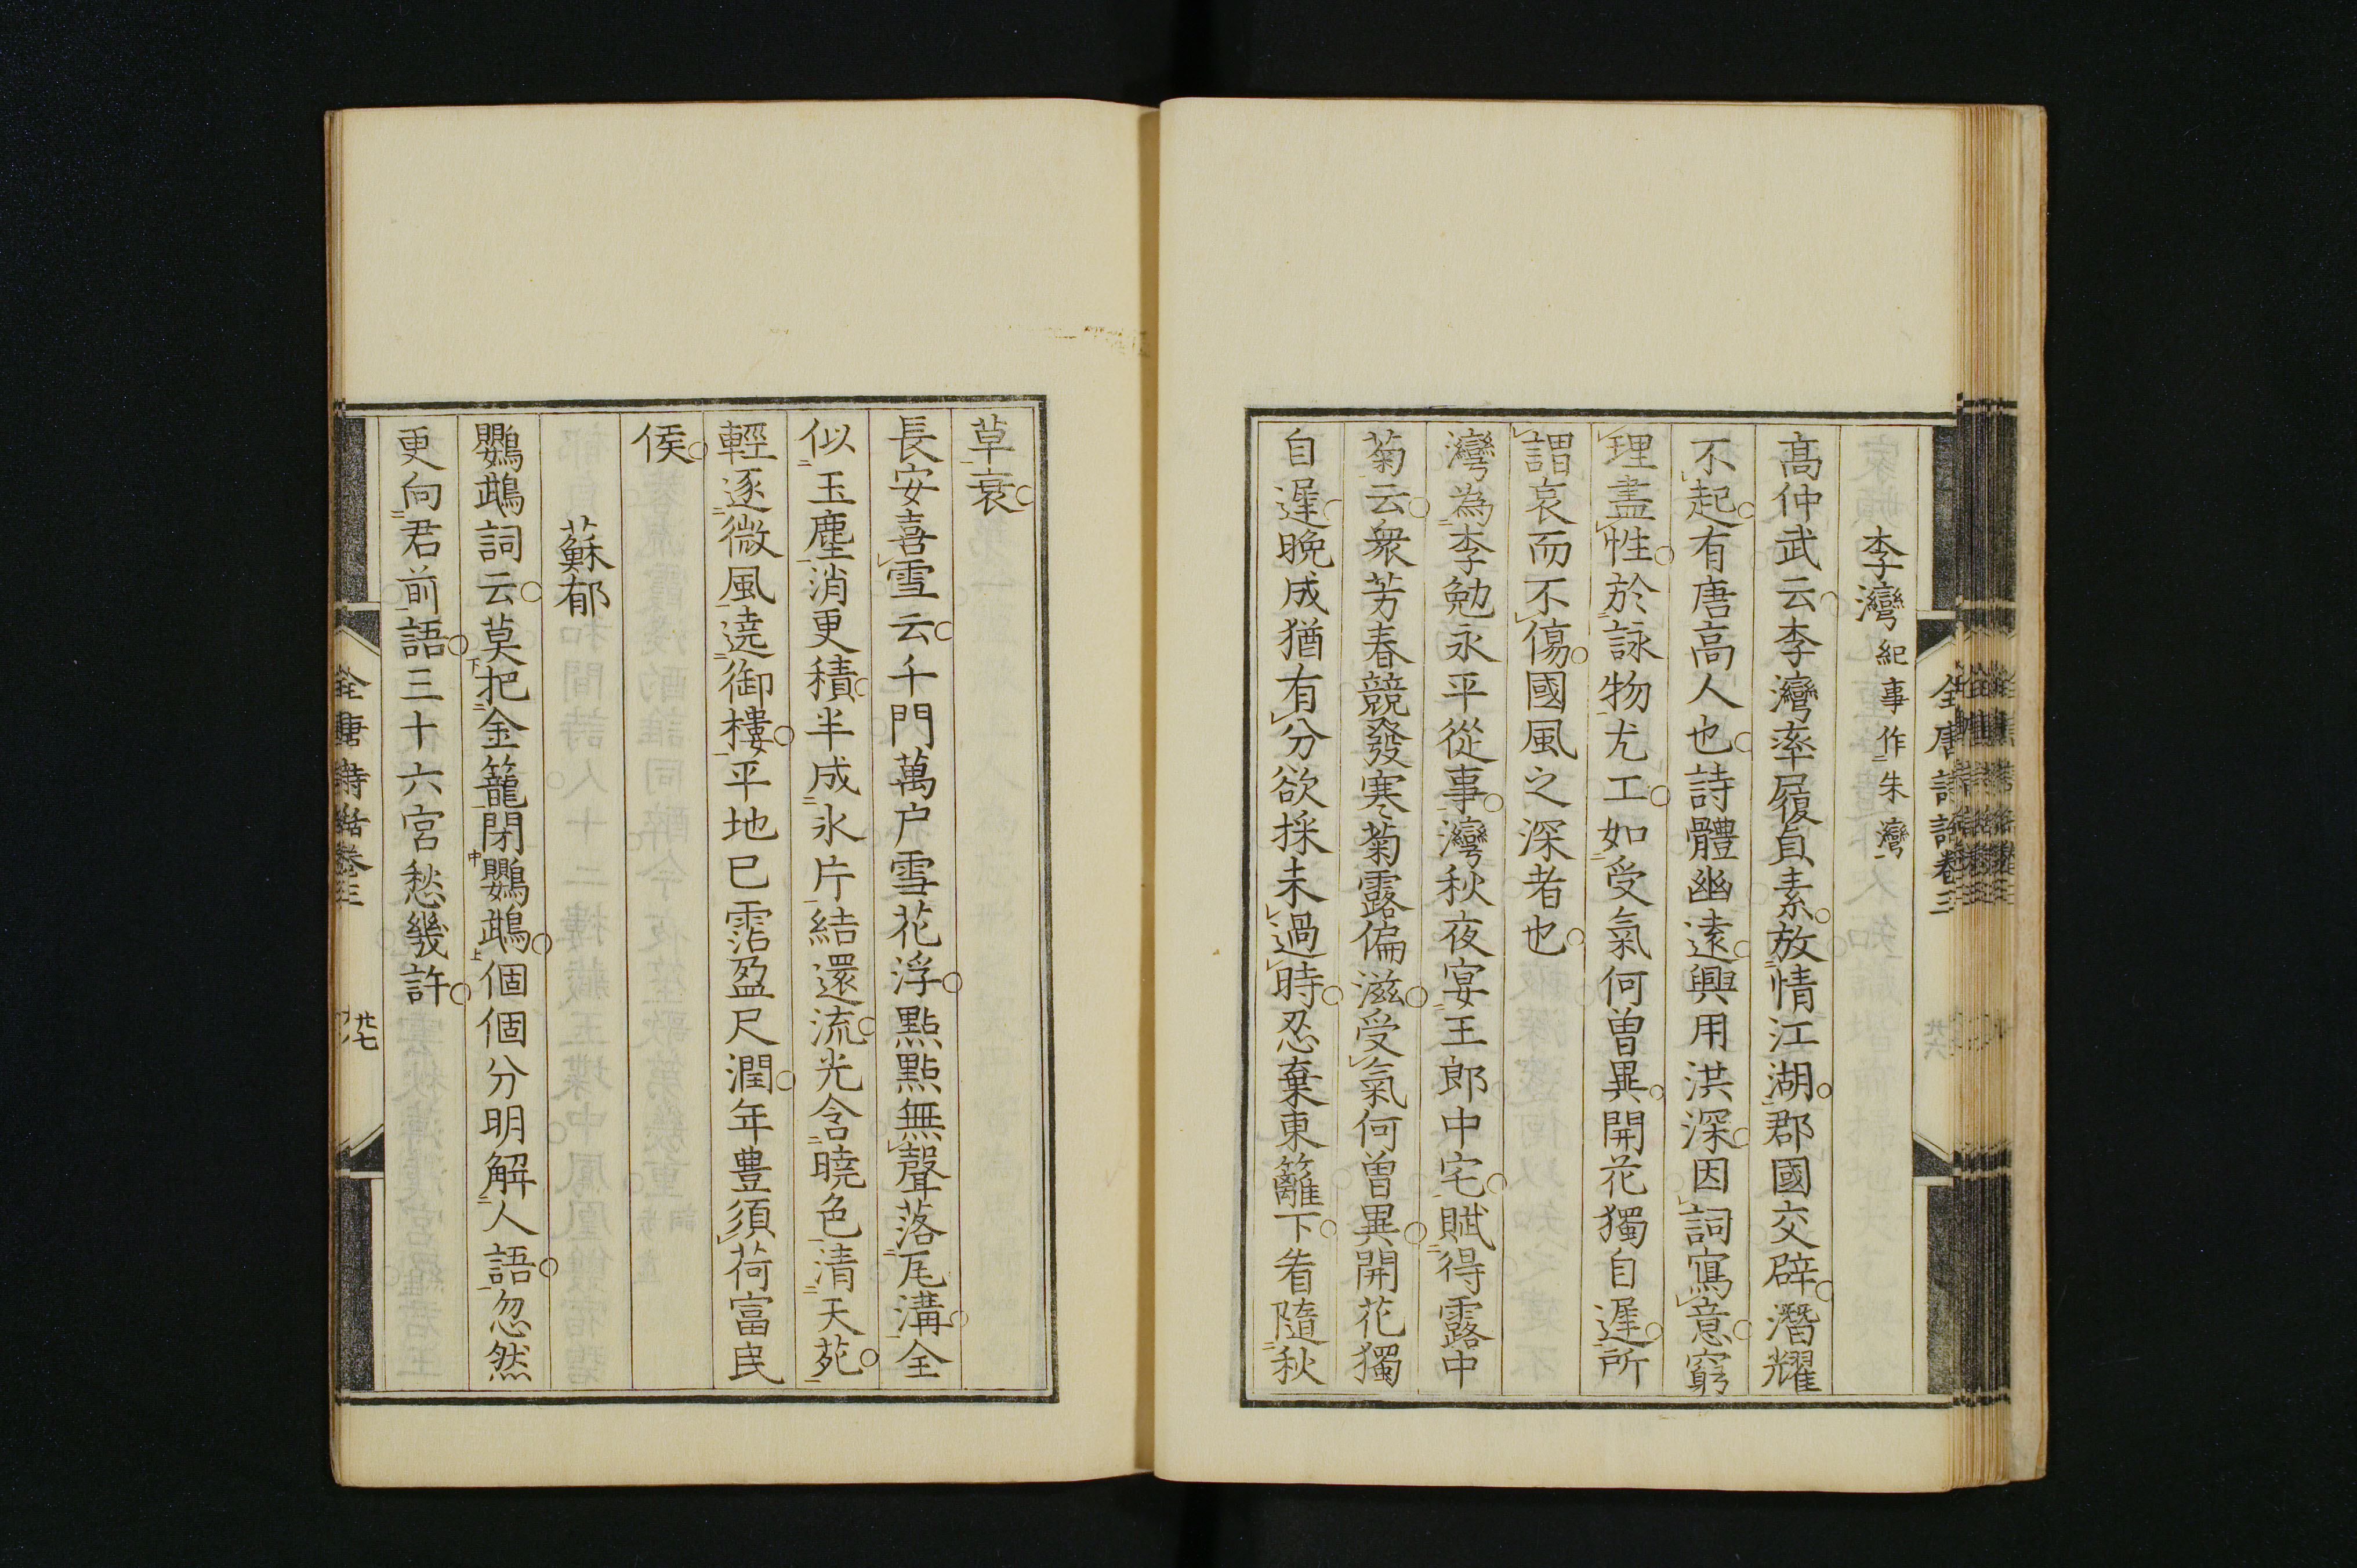 李灣紀事作朱灣
高仲武云李灣率履貞素放情江湖郡國交辟潛耀
不起有唐高人也詩體幽遠興用洪深因詞寫意窮
理盡性於詠物尤工如受氣何曽異開花獨自遲所
謂哀而不傷國風之深者也
灣為李勉永平從事灣秋夜宴王郎中宅賦得露中
菊云衆芳春競發寒菊露偏滋受氣何曽異開花獨
自遲晚成猶有分欲採未過時忍棄東籬下看隨秋
草衰
長安喜雪云千門萬户雪花浮點點無聲落瓦溝全
似玉塵消更積半成氷片結還流光含曉色清天苑
輕逐微風遶御樓平地已霑盈尺潤年豊須荷富民
侯
蘇郁
鸚鵡詞云莫把金籠閉鸚鵡個個分明解人語忽然
更向君前語三十六宮愁幾許
全唐詩話卷三
廿七